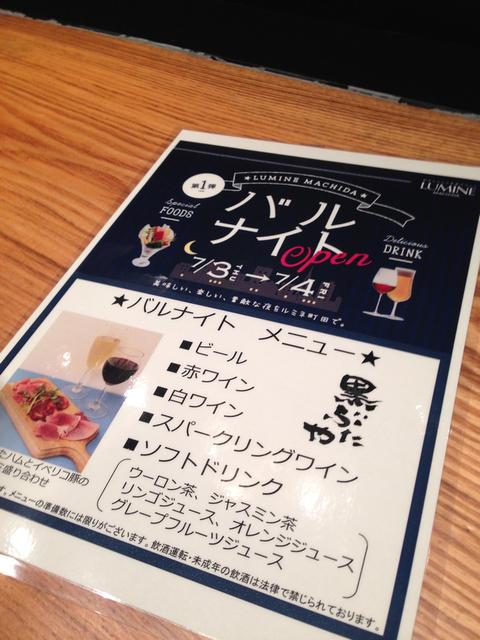 第1弾
★LUMINE MACHIDA★
LUMINE
MACHIDA
Special
FOODS
バル
ナイト
Open
Delicious
DRINK
7/3 THU → 7/4 FRI
美味しい、楽しい、素敵な夜をルミネ町田で。
★バルナイト メニュー★
■ビール
■赤ワイン
■白ワイン
■スパークリングワイン
■ソフトドリンク
ウーロン茶、ジャスミン茶
リンゴジュース、オレンジジュース
グレープフルーツジュース
黒ぶたや
たハムとイベリコ豚の
盛り合わせ
す。メニューの準備数には限りがございます。飲酒運転・未成年の飲酒は法律で禁じられております。